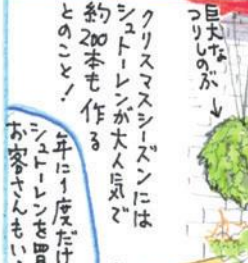 巨大な
つりしのぶ→
クリスマスシーズンには
シュトーレンが大人気で
約200本も作る
とのこと!
年に1度だけ
シュトーレンを買
お客さんもい